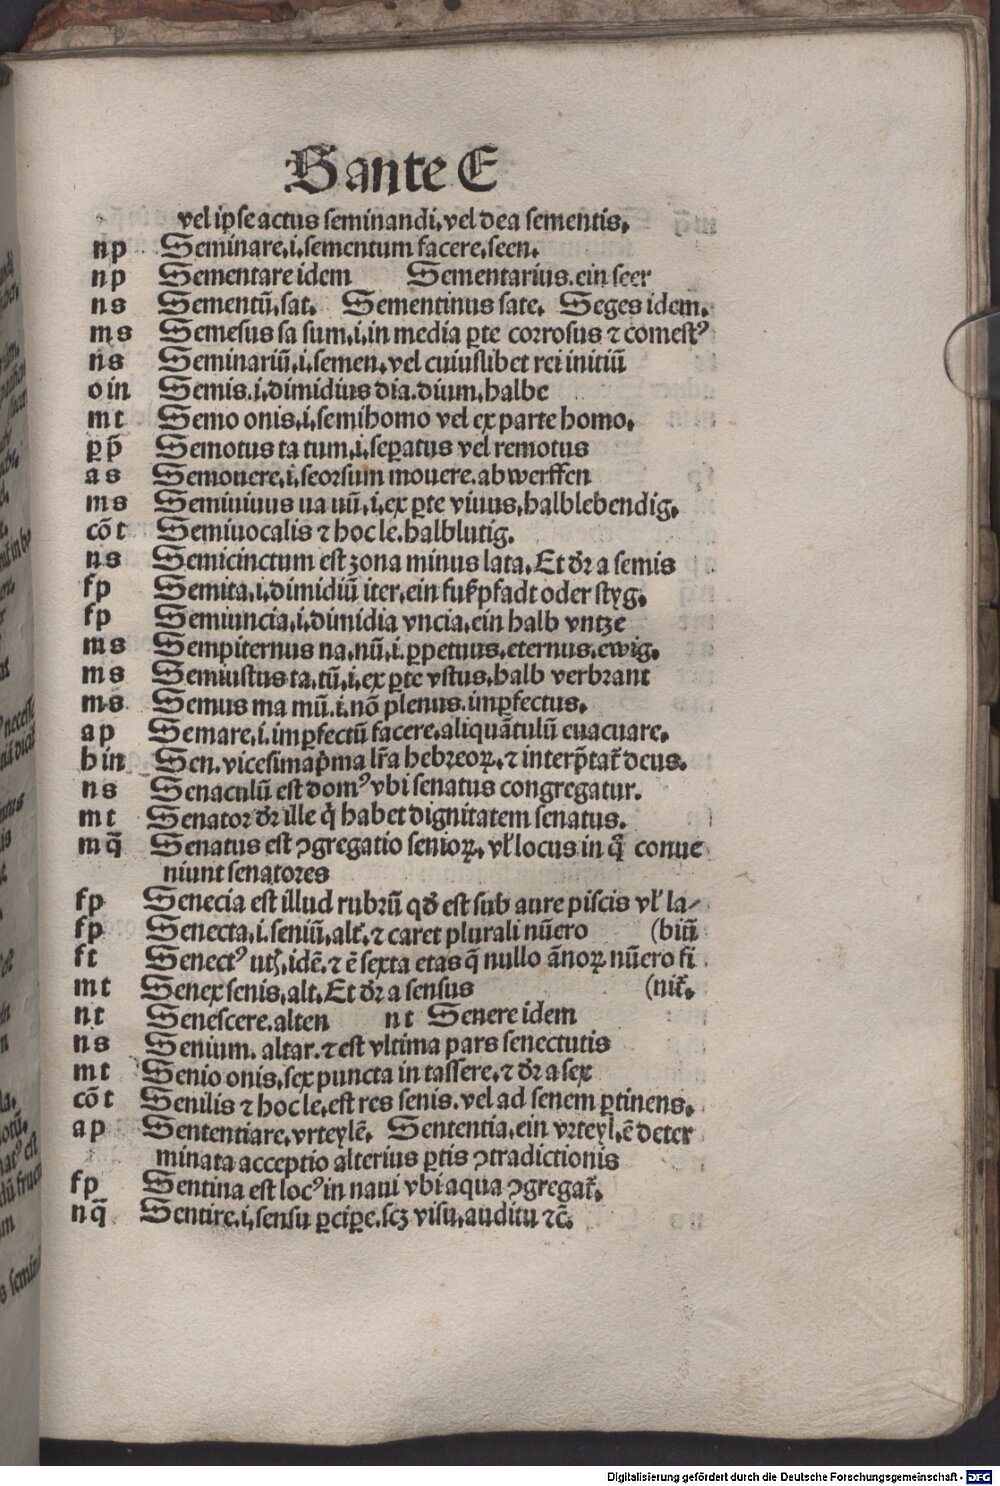 S ante E
vel ipse actus seminandi, vel dea sementis.
n p Seminare, i, sementum facere, seen.
n p Sementare idem Sementarius. ein seer
n s Sementū, sat. Sementinus sate. Seges idem.
m s Semesus sa sum, i, in media ꝑte corrosus ⁊ comestꝰ
n s Seminariū, i, semen, vel cuiuslibet rei initiū
o in Semis. i. dimidius dia. dium, halbe
m t Semo onis, i, semihomo vel ex parte homo.
ꝑ p̄ Semotus ta tum, i, seꝑatus vel remotus
a s Semouere, i, seorsum mouere. abwerffen
m s Semiuiuus ua uū, i, ex ꝑte viuus, halblebendig.
cō t Semiuocalis ⁊ hoc le. halblutig.
n s Semicinctum est zona minus lata. Et dr̄ a semis
f p Semita, i, dimidiū iter, ein fußpfadt oder styg.
f p Semiuncia, i, dimidia vncia, ein halb vntze
m s Sempiternus na, nū, i. ꝑpetuus, eternus, ewig.
m s Semiustus ta, tū, i, ex ꝑte vstus, halb verbrant
m s Semus ma mū. i. nō plenus. imꝑfectus.
a p Semare, i. imꝑfectū facere, aliquātulū euacuare.
h in Sen. vicesimap̄ma lr̄a hebreoꝝ, ⁊ interp̄tat̄ deus.
n s Senaculū est domꝰ vbi senatus congregatur.
m t Senator dr̄ ille q̇ habet dignitatem senatus.
m q̄ Senatus est ꝯgregatio senioꝝ, vl̓ locus in q̄ conue
niunt senatores
f p Senecia est illud rubrū qd̓ est sub aure piscis vl̓ la⸗
f p Senecta, i. seniū, alt̓, ⁊ caret plurali nūero (biū
f t Senectꝰ utꝭ, idē. ⁊ ē sexta etas q̄ nullo ānoꝝ nūero fi
m t Senex senis, alt. Et dr̄ a sensus (nit̓.
n t Senescere. alten n t Senere idem
n s Senium. altar. ⁊ est vltima pars senectutis
m t Senio onis, sex puncta in tassere, ⁊ dr̄ a sex
cō t Senilis ⁊ hoc le, est res senis. vel ad senem ꝑtinens.
a p Sententiare, vrteylē. Sententia, ein vrteyl, ē deter
minata acceptio alterius ꝑtis ꝯtradictionis
f p Sentina est locꝰ in naui vbi aqua ꝯgregat̓.
n q̄ Sentire, i, sensu ꝑciꝑe. scꝫ visu, auditu ⁊c̄.
Digitalisierung gefördert durch die Deutsche Forschungsgemeinschaft - DFG